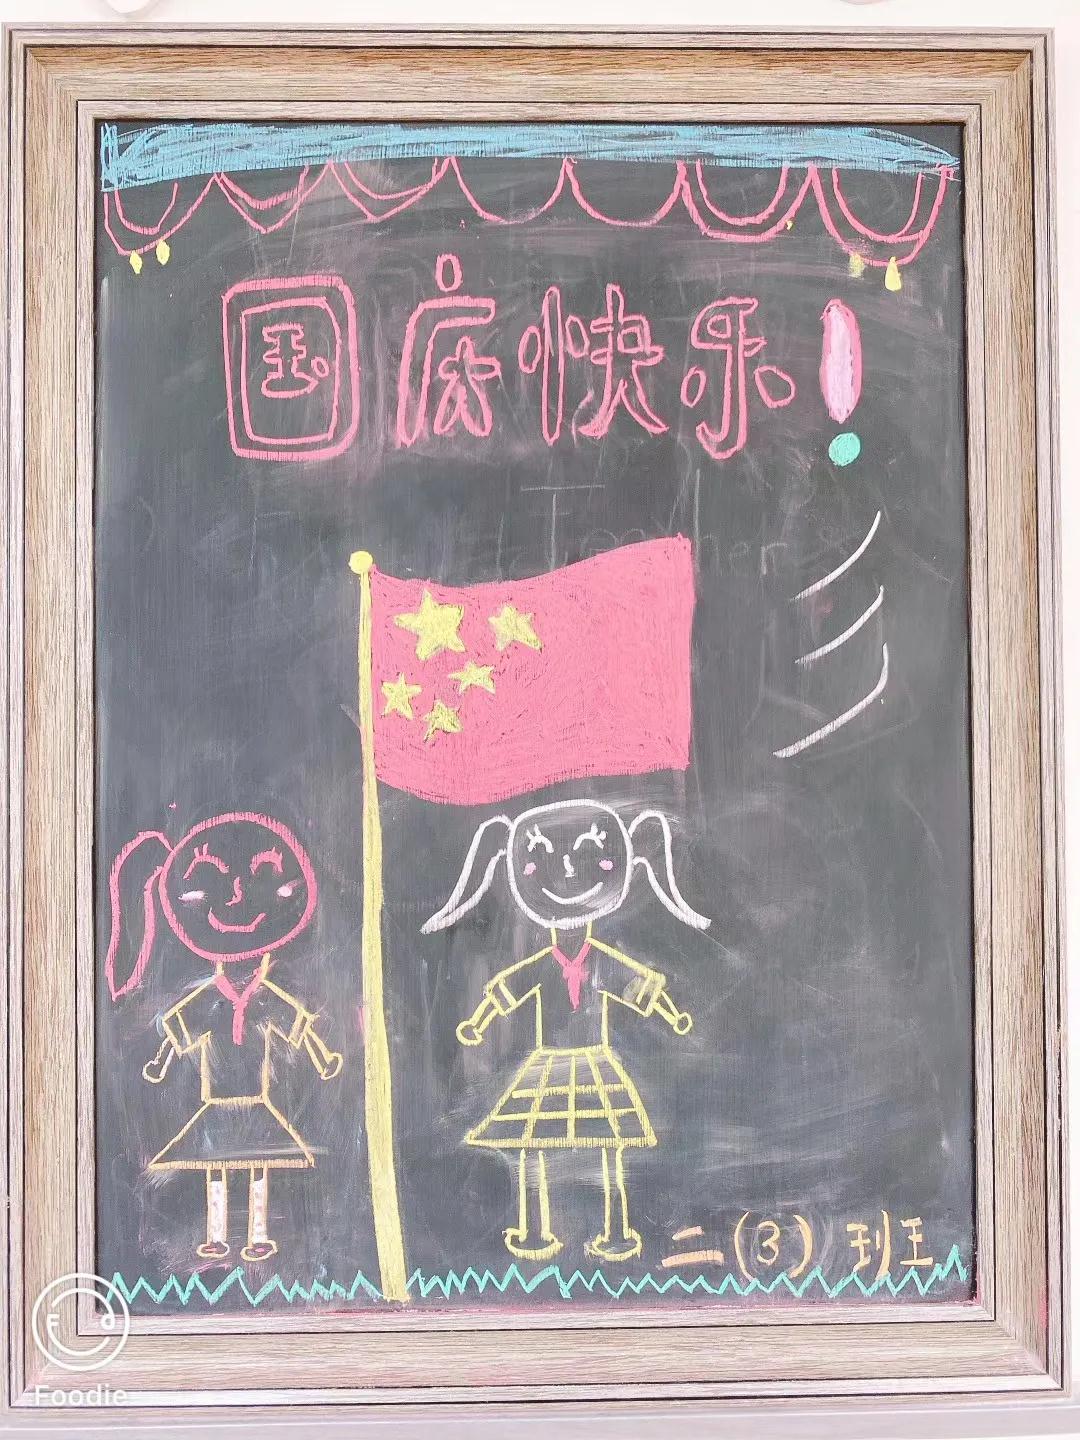 国庆快乐!
二(3)班
Foodie